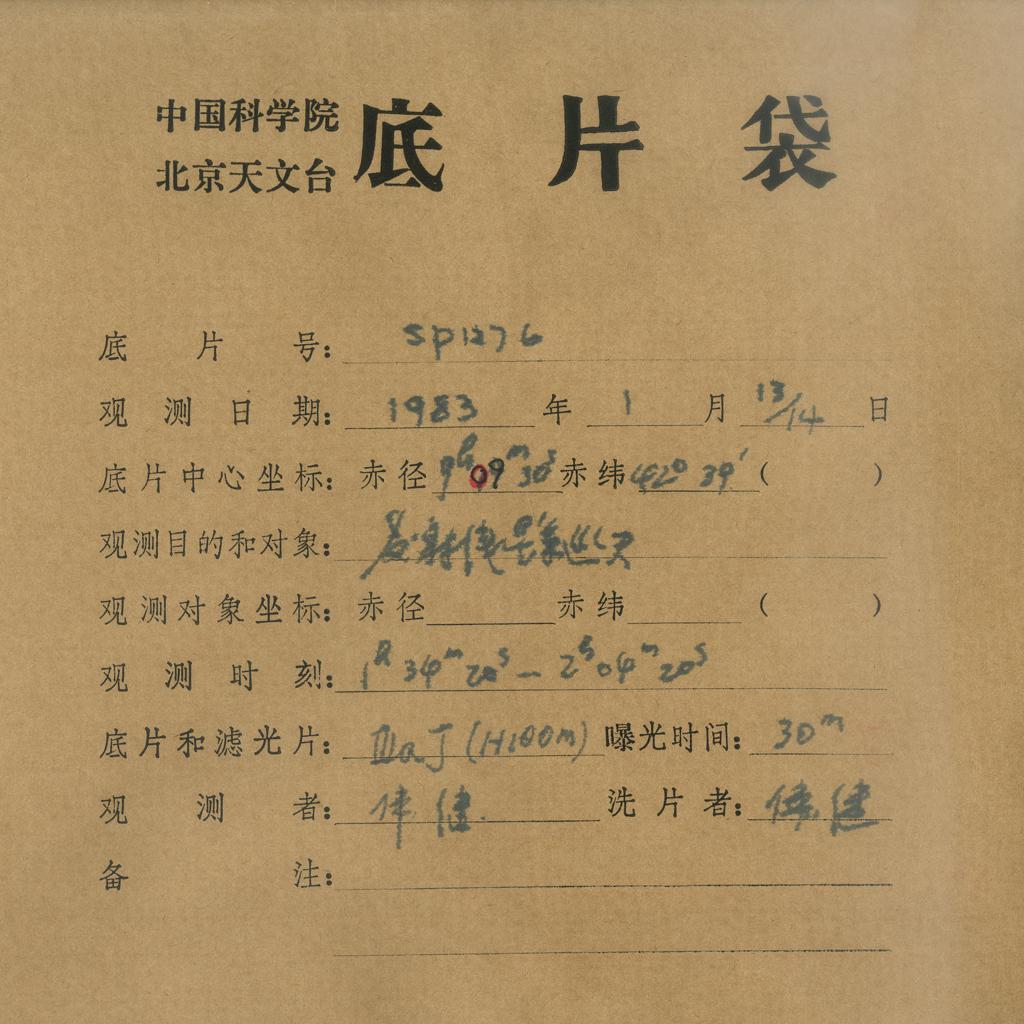 中国科学院
北京天文台
底片袋
底片号: SP1276
观测日期: 1983年 1月 13/14日
底片中心坐标: 赤径 9h09m30s 赤纬 42° 39′ ( )
观测目的和对象: 发射
观测对象坐标: 赤径 赤纬 ( )
观测时刻: 1h 34m 20s — 2h 04m 20s
底片和滤光片: IIIaJ (H100m) 曝光时间: 30m
观测者: 健 洗片者: 健
备注: